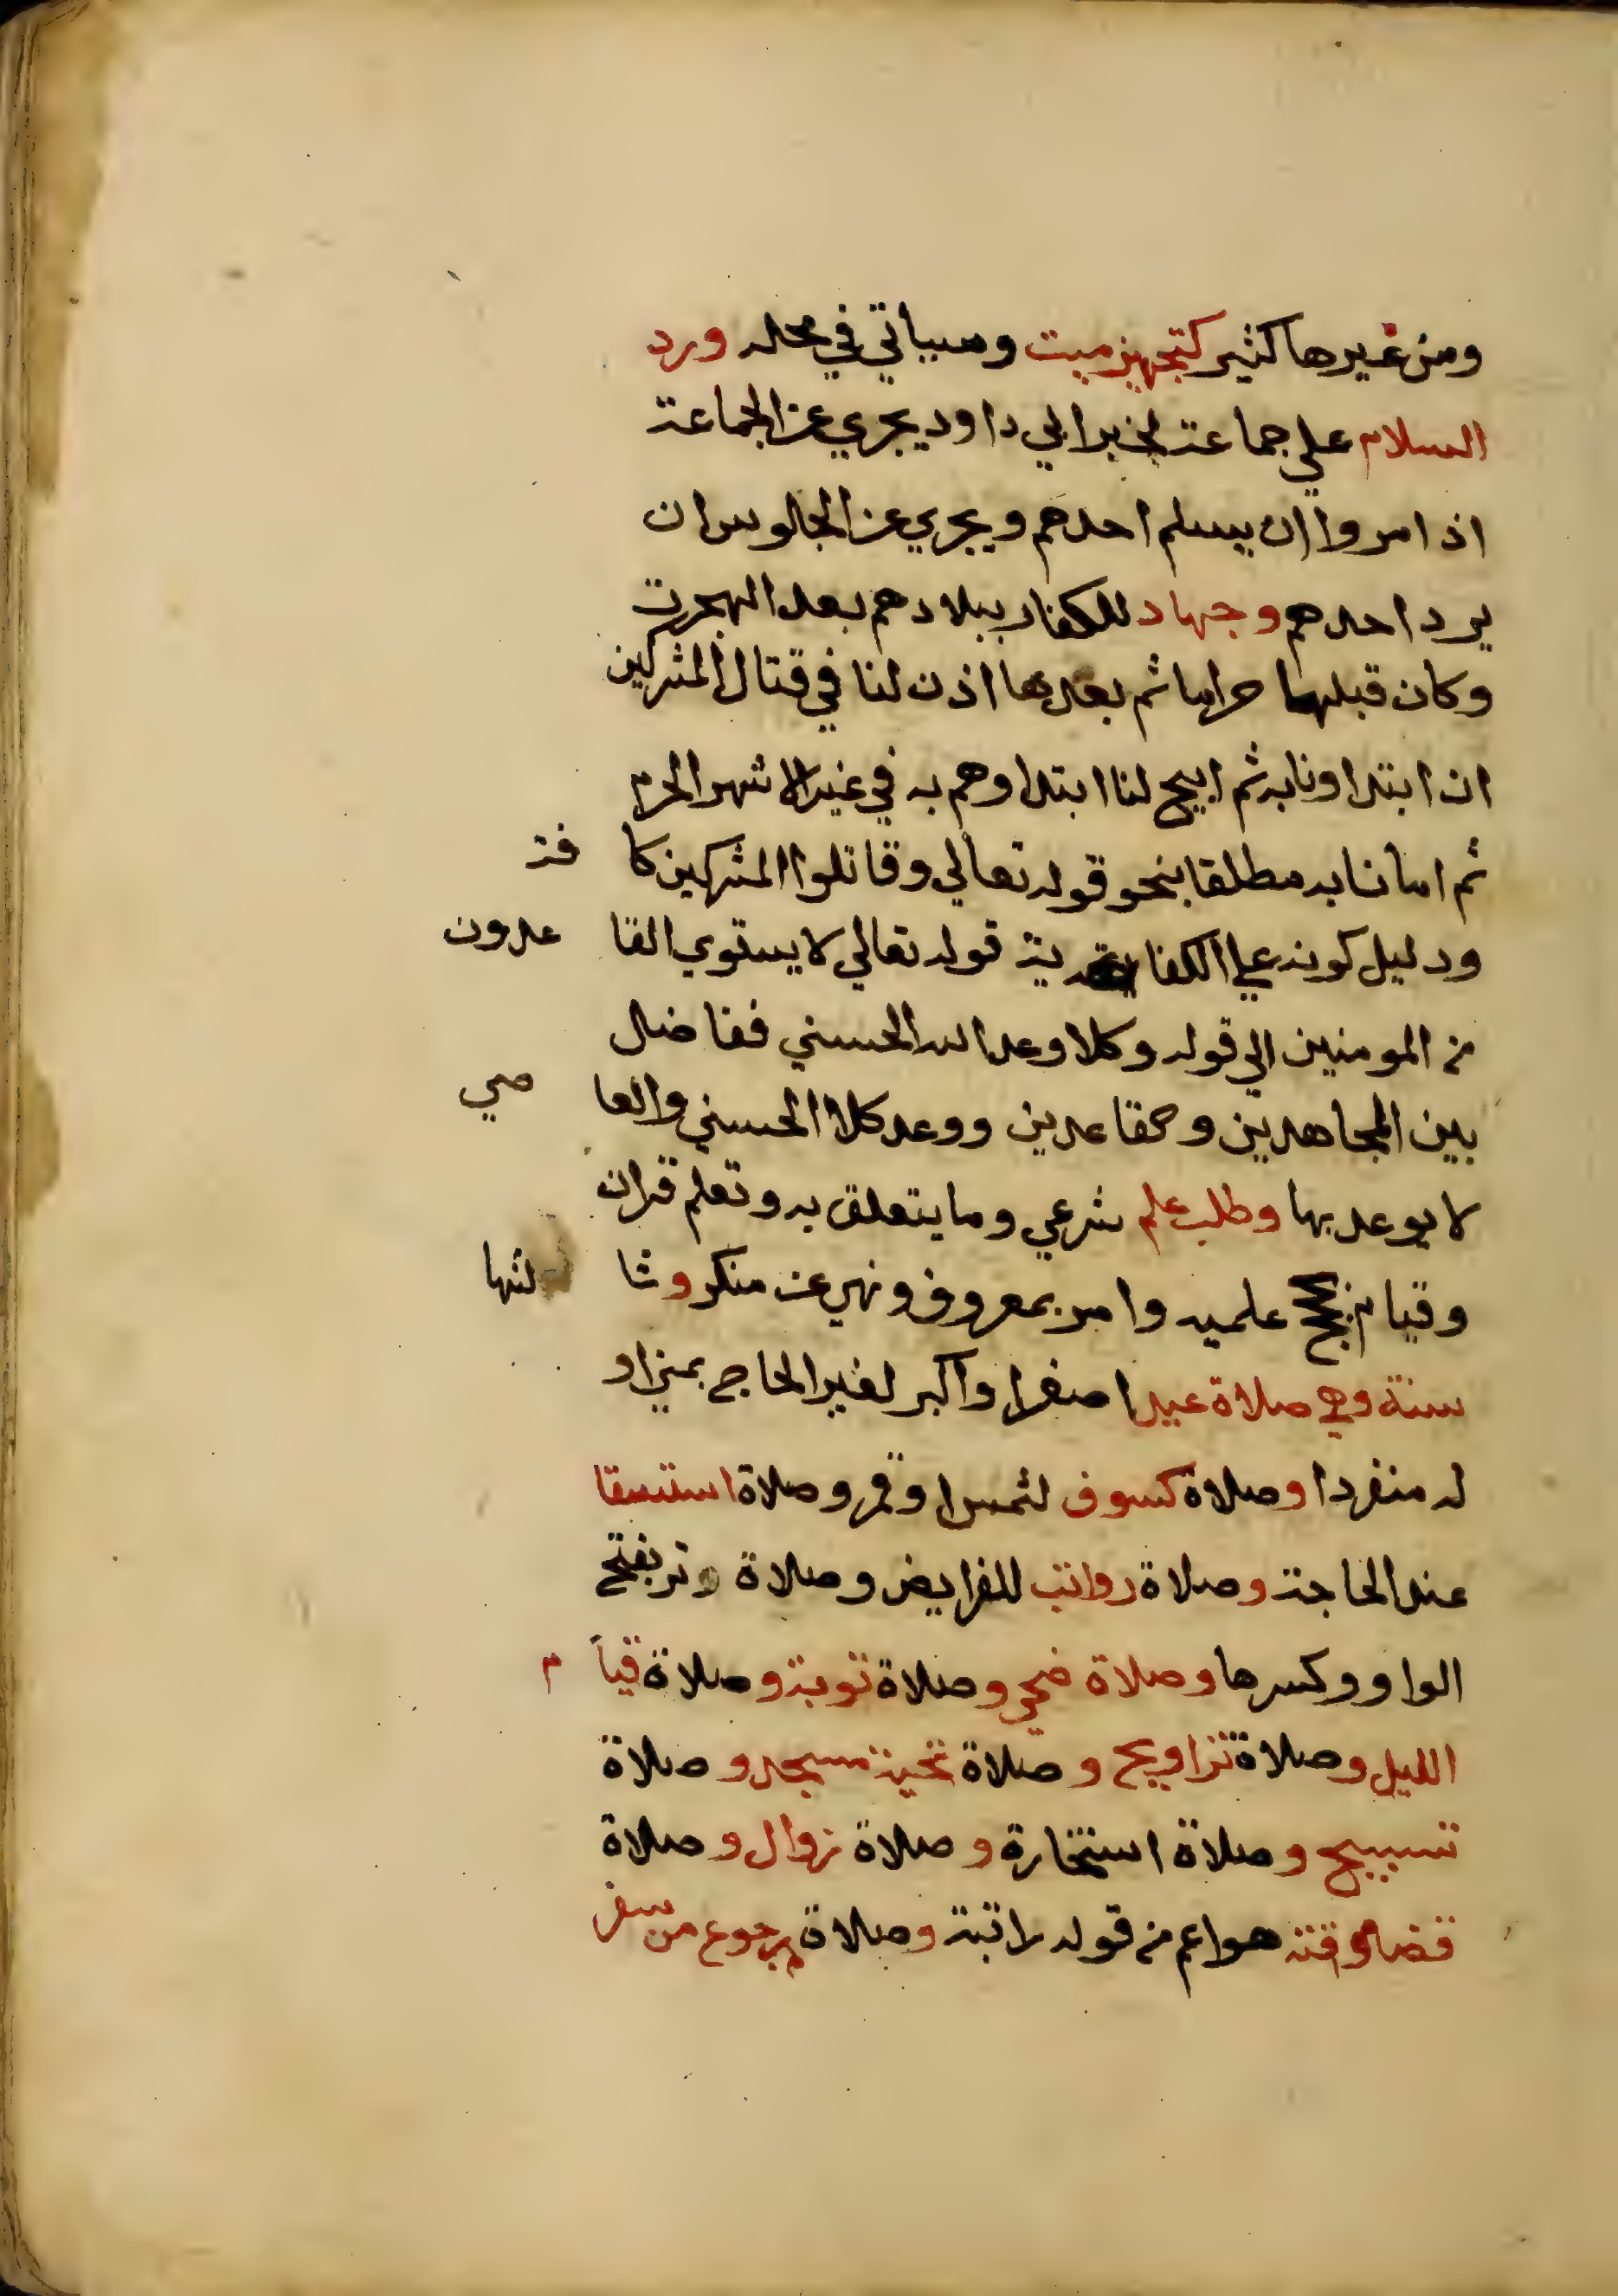 ومن غيرها كثير كتجهيز ميت وسياتي في محله ورد
السلام علي جماعة لخبر ابي داود يجزي عن الجماعة
اذا مروا ان يسلم احدهم ويجزي عن الجالوس ان
يرد احدهم وجهاد للكفار ببلادهم بعد الهجرت
وكان قبلها حراما ثم بعدها اذن لنا في قتال المشركين
ان ابتداونا به ثم ابيح لنا ابتداوهم به في غير الاشهر الحرم
ثم امرنا به مطلقا بنحو قوله تعالي وقاتلوا المشركين كا فة
ودليل كونه علي الكفاية قوله تعالي لا يستوي القا عدون
من المومنين الي قوله وكلا وعد الله الحسني ففاضل
بين المجاهدين والقاعدين ووعد كلا الحسني والعا صي
لا يوعد بها وطلب علم شرعي وما يتعلق به وتعلم قران
وقيام بحجج علميه وامر بمعروف ونهي عن منكر وثا لثها
سنة وهي صلاة عيد اصغر او اكبر لغير الحاج بمني او
له منفردا وصلاة كسوف لشمس او قمر وصلاة استسقا
عند الحاجة وصلاة رواتب للفرايض وصلاة وتر بفتح
الواو وكسرها وصلاة ضحي وصلاة توبة وصلاة قيا م
الليل وصلاة تراويح وصلاة تحية مسجد وصلاة
تسبيح وصلاة استخارة وصلاة زوال وصلاة
قضا موقتة هو اعم من قوله راتبة وصلاة رجوع من سفر